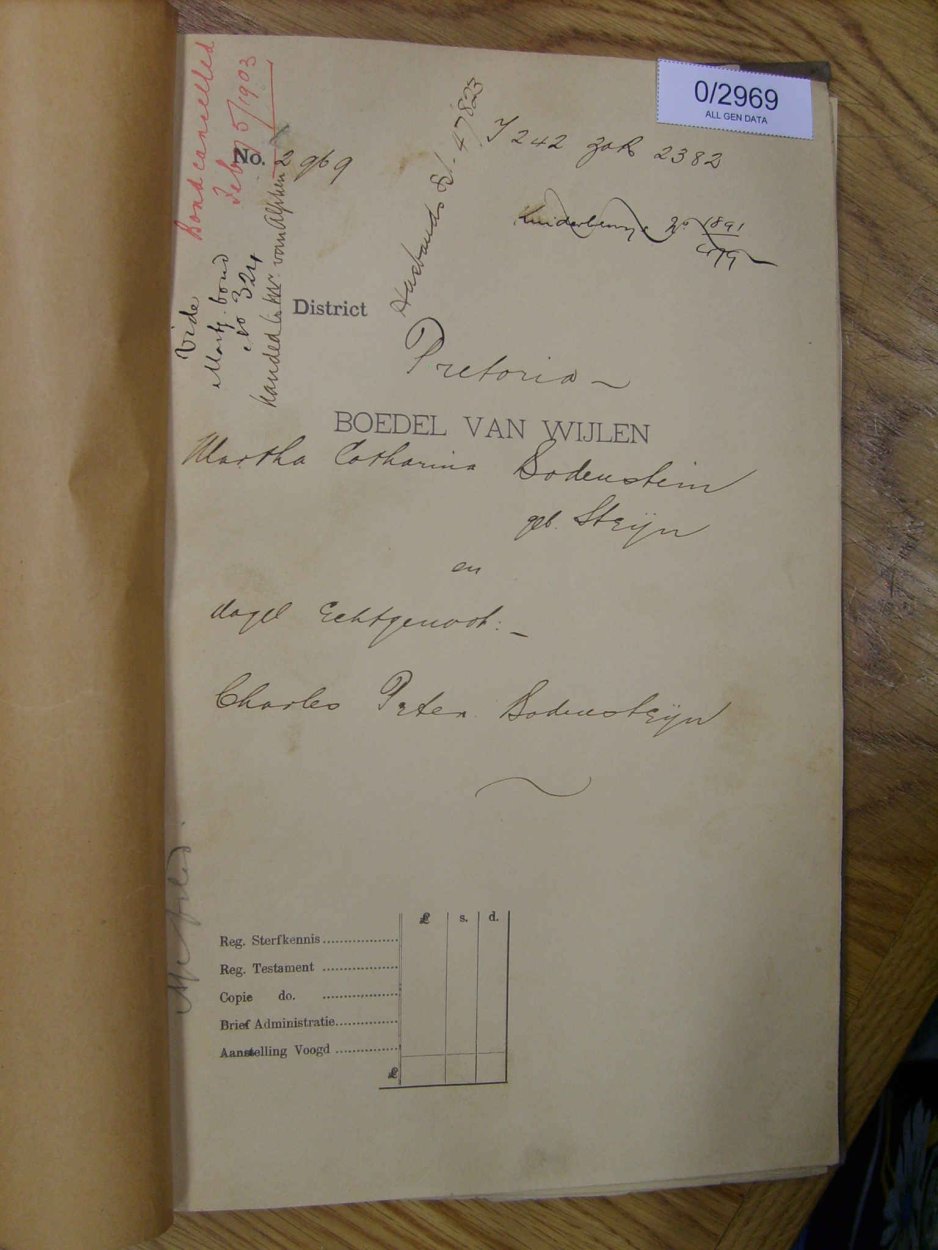 0/2969
ALL GEN DATA
Bond cancelled
Feb 5/1903
No. 2969
J 242 zak 2382
Husbands E/- 47823
Kinderbewijs No 1891
479
Vide
Mortg. bond
No 324
handed to Mr. van Alphen
District
Pretoria
BOEDEL VAN WIJLEN
Martha Catharina Bodenstein
geb. Steijn
en
nagel Echtgenoot:
Charles Peter Bodensteijn
£ s. d.
Reg. Sterfkennis
Reg. Testament
Copie do.
Brief Administratie
Aanstelling Voogd
£